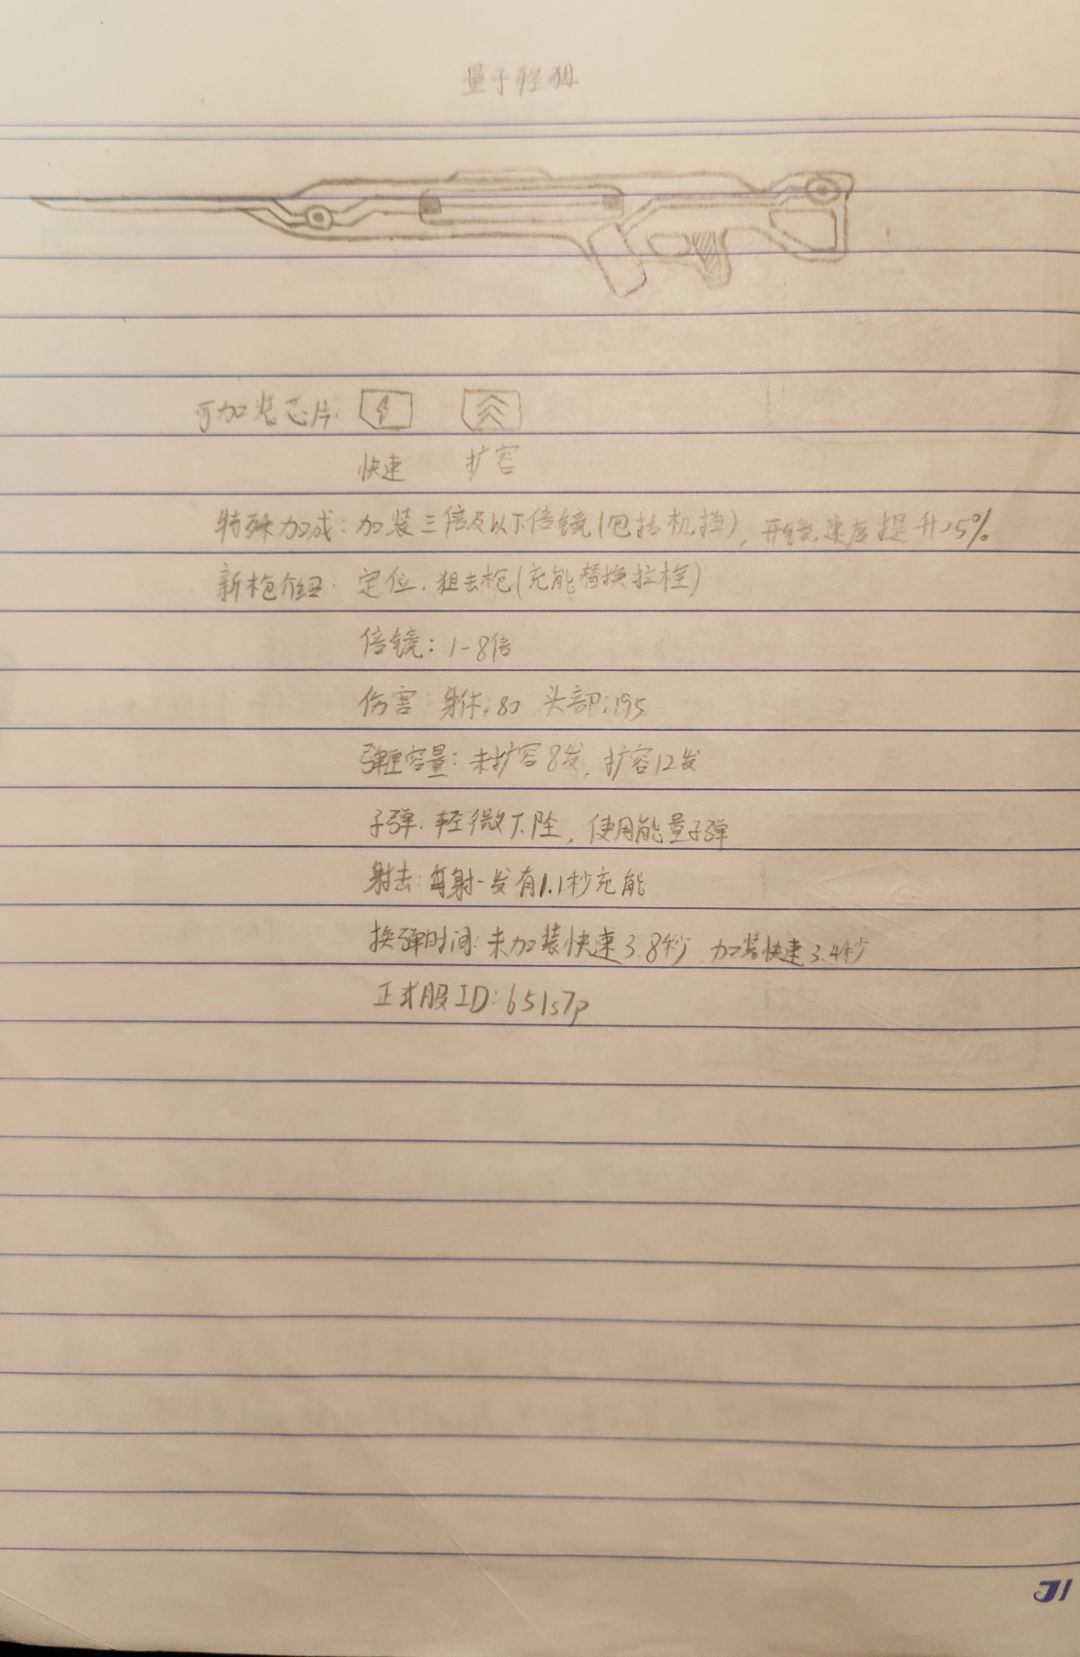 量子轻狙
可加装芯片:
快速 扩容
特殊加成:加装三倍及以下倍镜(包括机瞄),开镜速度提升25%
新枪介绍:定位:狙击枪(充能替换拉栓)
倍镜:1-8倍
伤害:身体:80 头部:195
弹匣容量:未扩容8发,扩容12发
子弹:轻微下坠,使用能量子弹
射击:每射一发有1.1秒充能
换弹时间:未加装快速3.8秒 加装快速3.4秒
正式服ID:651s7p